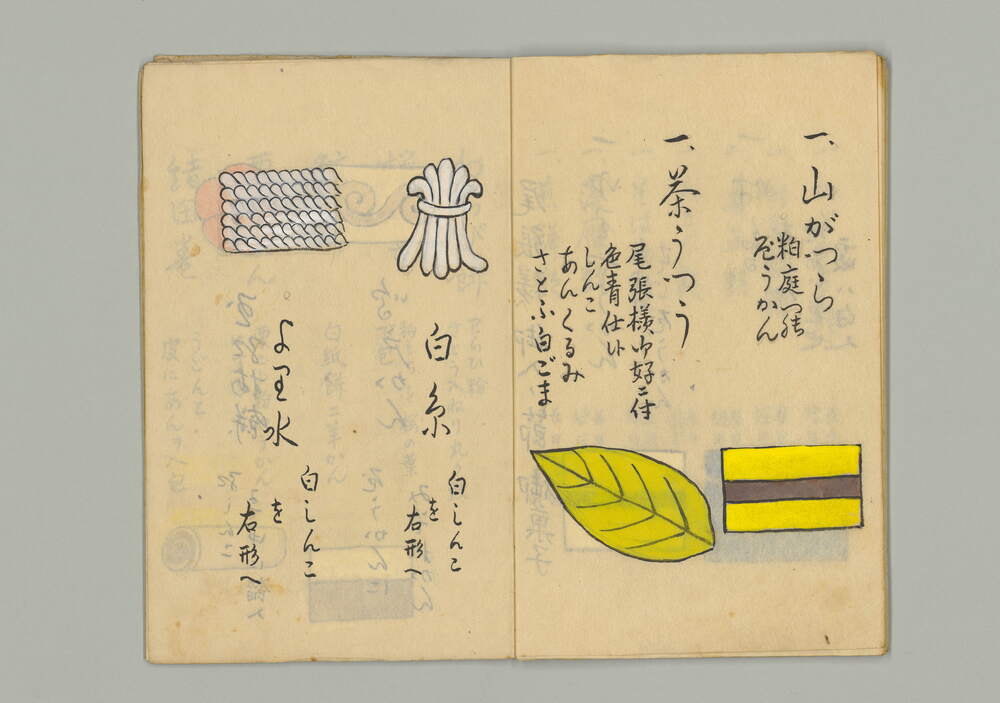 一、山がつら
粕庭つ
やうかん
一、茶うつう
尾張様御好ニ付
色青仕ル
しんこ
あんくるみ
さとふ白ごま
白糸
白しんこ
を
右形へ
より水
白しんこ
を
右形へ